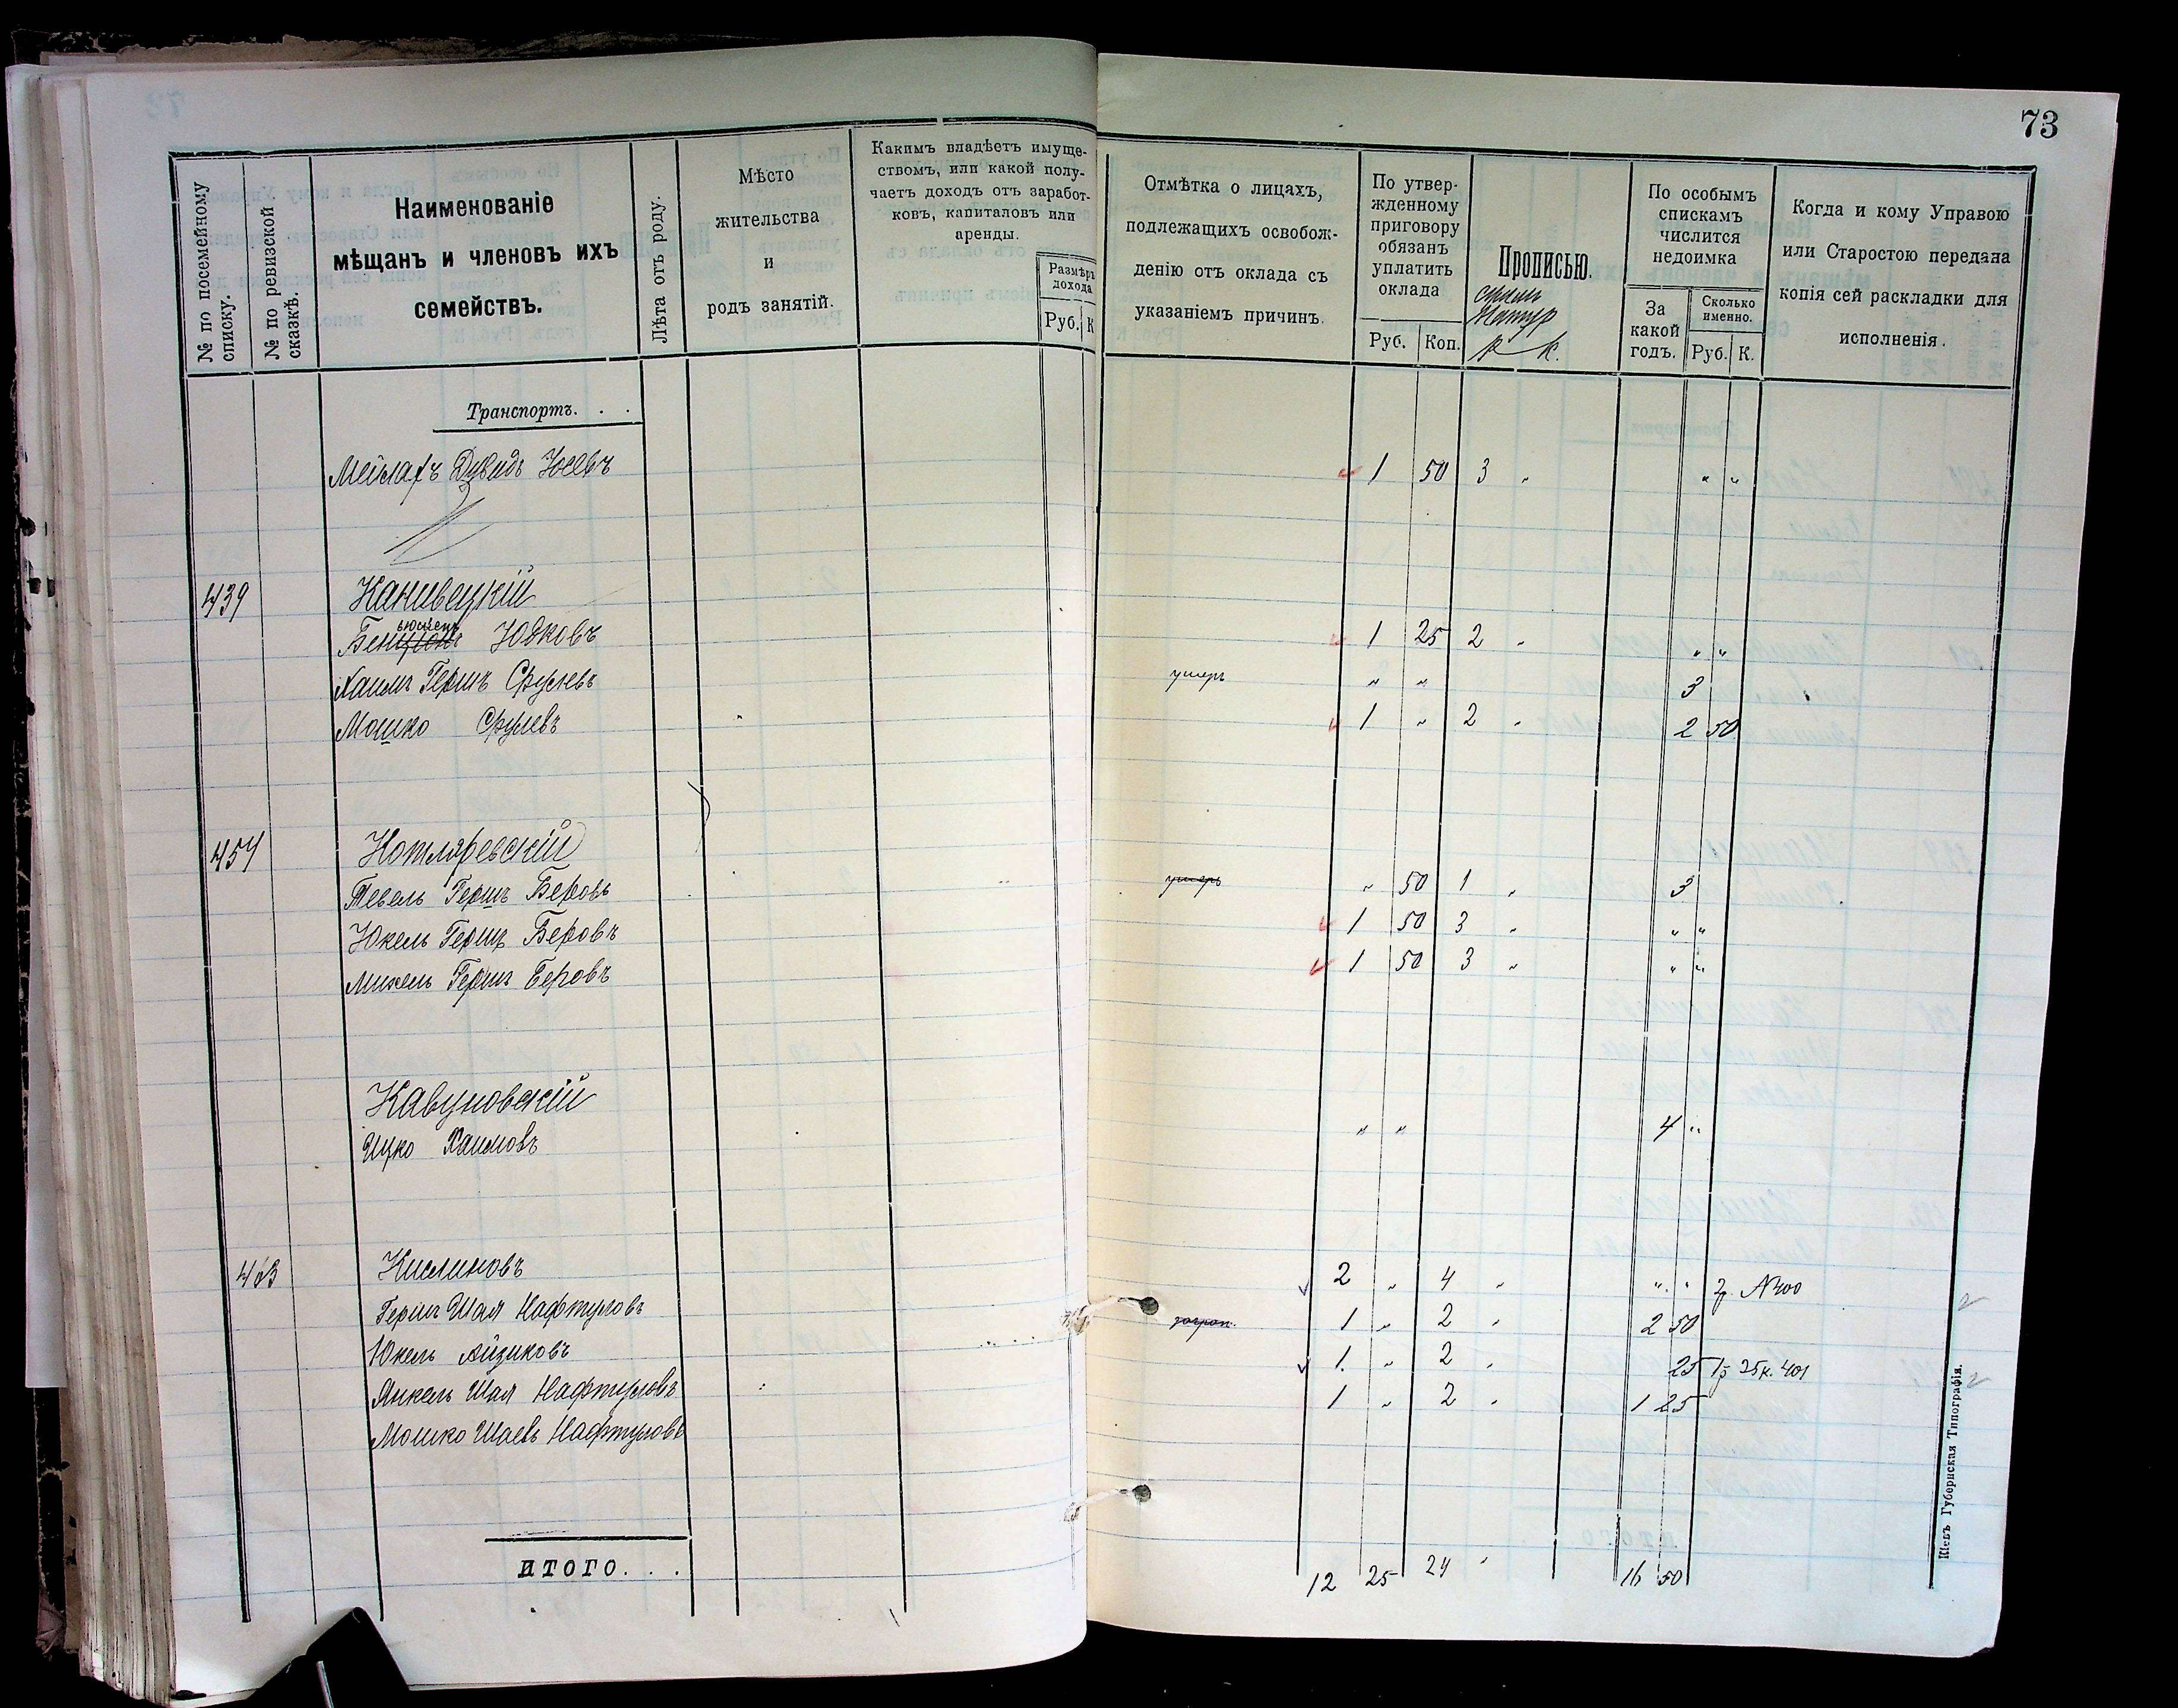 73
№ по посемейному списку.
№ по ревизской сказкѣ.
Наименованіе
мѣщанъ и членовъ ихъ
семействъ.
Лѣта отъ роду.
Мѣсто
жительства
и
родъ занятій.
Какимъ владѣетъ имуще-
ствомъ, или какой полу-
чаетъ доходъ отъ заработ-
ковъ, капиталовъ или
аренды.
Размѣръ
дохода
Руб. К
Отмѣтка о лицахъ,
подлежащихъ освобож-
денію отъ оклада съ
указаніемъ причинъ.
По утвер-
жденному
приговору
обязанъ
уплатить
оклада
Руб. Коп.
Прописью.
Р К.
По особымъ
спискамъ
числится
недоимка
За
какой
годъ.
Сколько
именно.
Руб. К.
Когда и кому Управою
или Старостою передана
копія сей раскладки для
исполненія.
Транспортъ. . .
Дувидъ 1 50 3 " " "
439 Каневецкій
Бенціонъ Юдковъ 1 25 2 " " "
Хаимъ Гершъ Срулевъ умеръ " " 3
Мошко Срулевъ 1 " 2 " 2 50
454 Котляревскій
Тевель Гершъ Беровъ умеръ " 50 1 " 3
Юкель Гершъ Беровъ 1 50 3 " " "
Михель Гершъ Беровъ 1 50 3 " " "
Кавуновскій
Ицко Хаимовъ " " 4 "
Кислиновъ 2 " 4 " " " 2р. №400
Гершъ Шая Нафтуловъ 1 " 2 " 2 50
Юкель Айзиковъ 1 " 2 " 25 25к. 401
Янкель Шая Нафтуловъ 1 " 2 " 1 25
Мошко Шаевъ Нафтуловъ
ИТОГО. . . 12 25 24 " 16 50
Кіевъ Губернская Типографія.